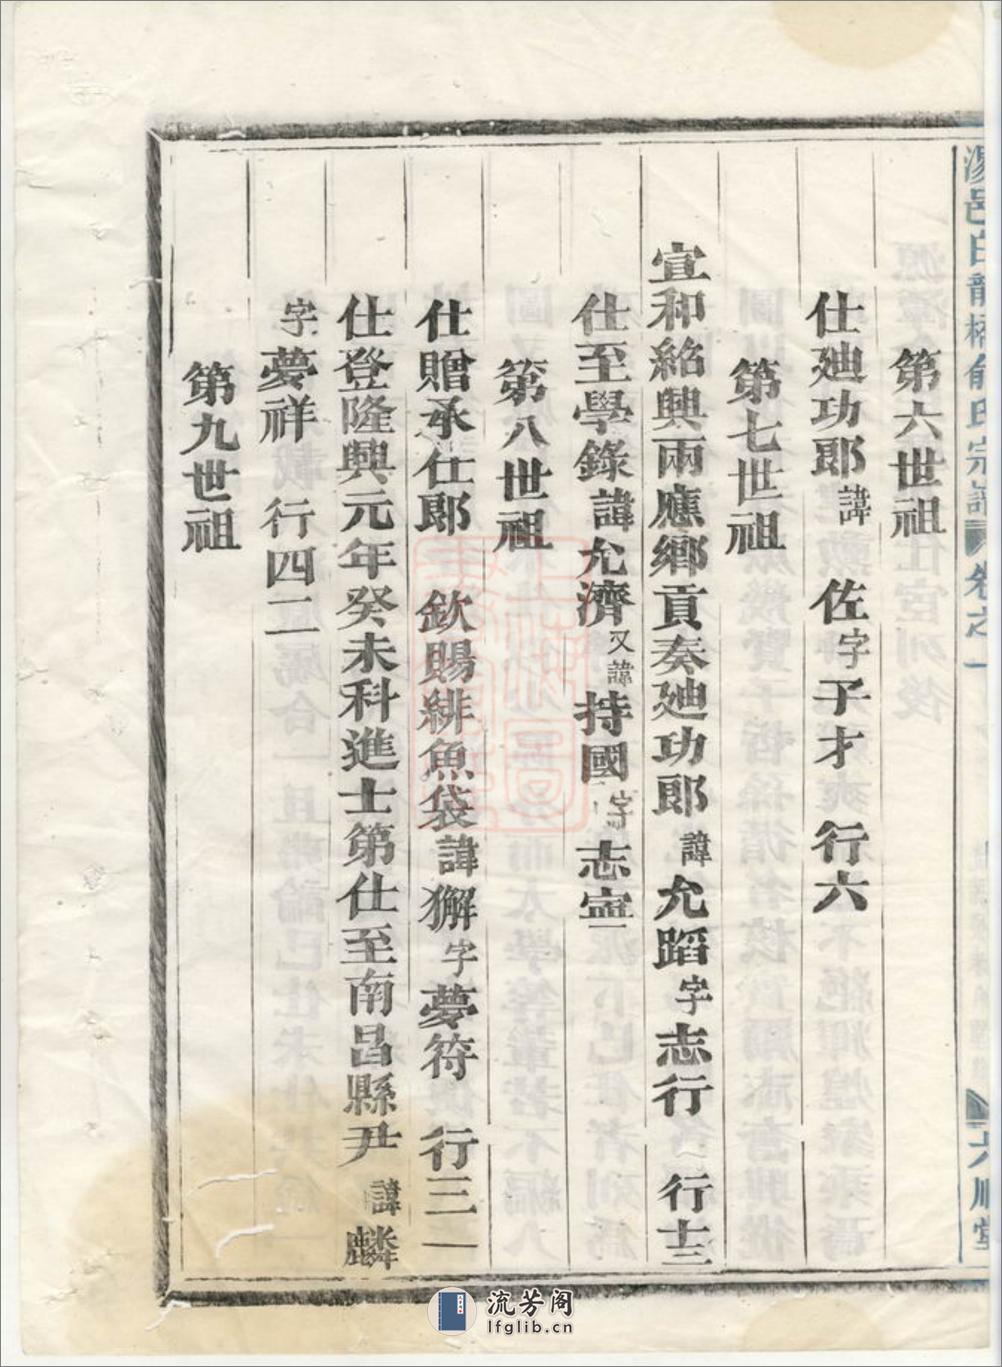 第六世祖
仕廸功郎諱 佐字子才 行六
第七世祖
宣和紹興兩應鄉貢奏廸功郎諱允蹈字志行 行十三
仕至學錄諱允濟又諱持國字志寧
第八世祖
仕贈承仕郎 欽賜緋魚袋諱獬字夢符 行三一
仕登隆興元年癸未科進士第仕至南昌縣尹諱麟
字夢祥 行四二
第九世祖
湯邑白龍橋俞氏宗譜 卷之一 六順堂
流芳阁
lfglib.cn